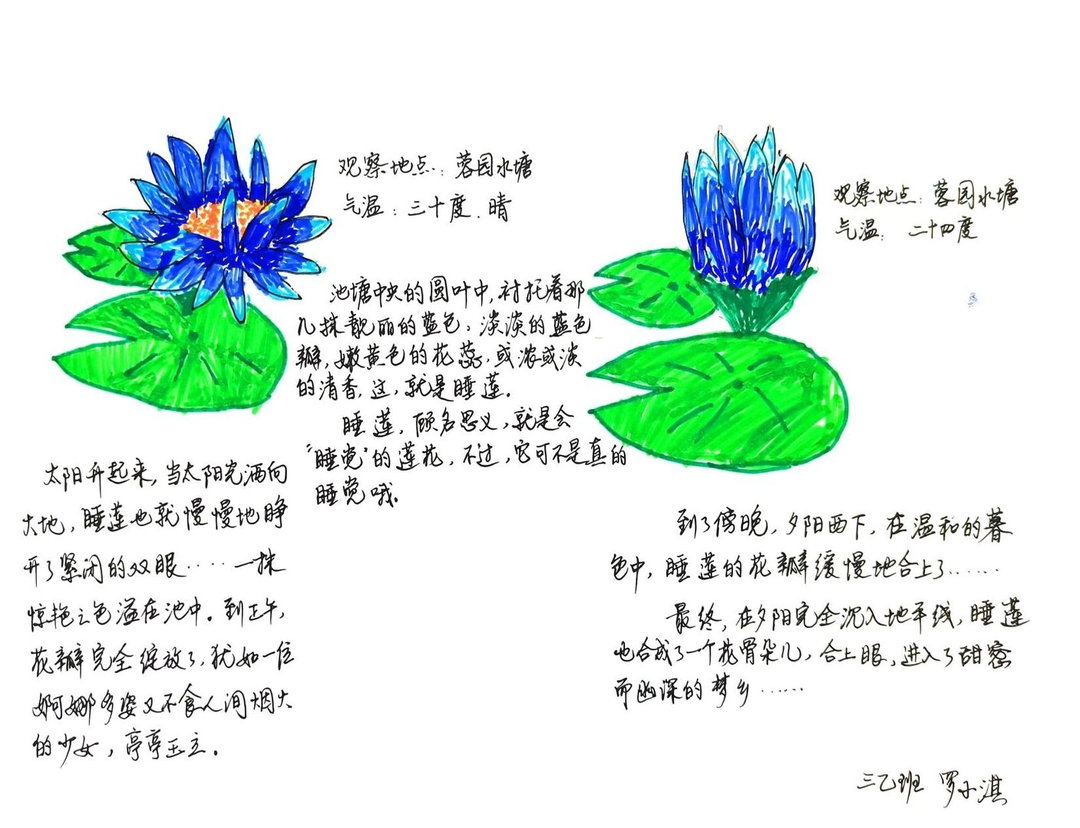 观察地点：蓉园水塘
气温：三十度．晴
池塘中央的圆叶中，衬托着那
几抹靓丽的蓝色，淡淡的蓝色
瓣，嫩黄色的花蕊，或浓或淡
的清香，这，就是睡莲。
睡莲，顾名思义，就是会
“睡觉”的莲花，不过，它可不是真的
睡觉哦。
太阳升起来，当太阳光洒向
大地，睡莲也就慢慢地睁
开了紧闭的双眼……一抹
惊艳之色溢在池中。到正午，
花瓣完全绽放了，犹如一位
婀娜多姿又不食人间烟火
的少女，亭亭玉立。
观察地点：蓉园水塘
气温：二十四度
到了傍晚，夕阳西下，在温和的暮
色中，睡莲的花瓣缓慢地合上了……
最终，在夕阳完全沉入地平线，睡莲
也合成了一个花骨朵儿，合上眼，进入了甜密
而幽深的梦乡……
三乙班 罗子淇